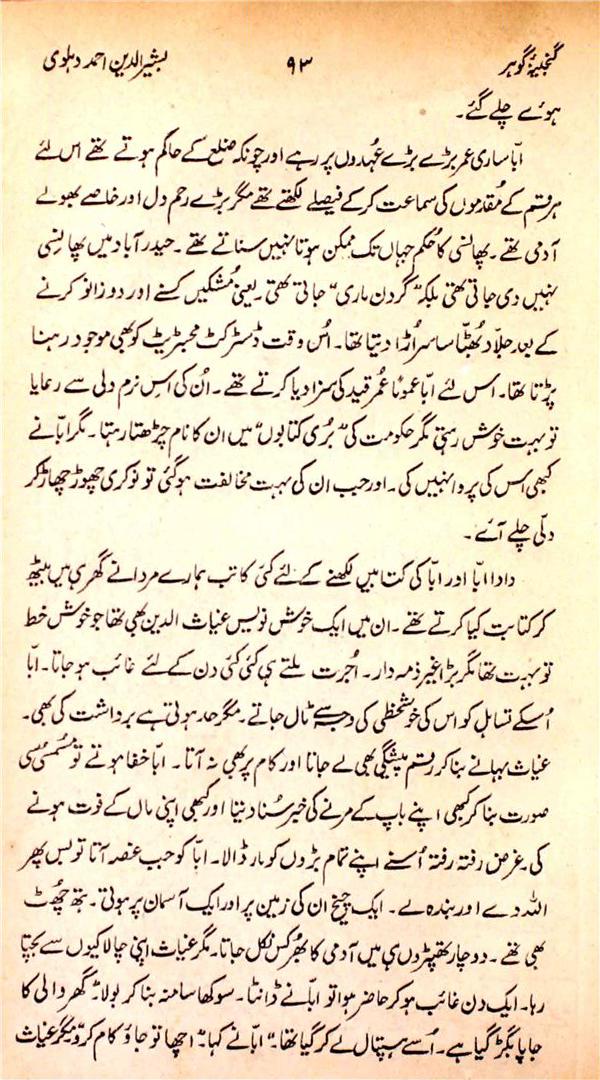 گنجینۂ گوہر ۹۳ بشیرالدین احمد دہلوی
ہوئے چلے گئے۔
ابّا ساری عمر بڑے بڑے عُہدوں پر رہے اور چونکہ ضلع کے حاکم ہوتے تھے اس لئے
ہر قسم کے مُقدموں کی سماعت کر کے فیصلے لکھتے تھے مگر بڑے رحم دل اور خاصے بھولے
آدمی تھے۔ پھانسی کا حُکم جہاں تک ممکن ہوتا نہیں سناتے تھے۔ حیدرآباد میں پھانسی
نہیں دی جاتی تھی بلکہ "گردن ماری" جاتی تھی۔ یعنی مُشکیں کسنے اور دوزانو کرنے
کے بعد جلاّد بُھٹّا سا سر اُڑا دیتا تھا۔ اُس وقت ڈسٹرکٹ مجسٹریٹ کو بھی موجود رہنا
پڑتا تھا۔ اس لئے ابّا عموماً عُمر قید کی سزا دیا کرتے تھے۔ اُن کی اِس نرم دلی سے رعایا
تو بہت خوش رہتی مگر حکومت کی "بُری کتابوں" میں ان کا نام چڑھتا رہتا۔ مگر ابّا نے
کبھی اس کی پروا نہیں کی۔ اور جب ان کی بہت مخالفت ہوگئی تو نوکری چھوڑ چھاڑ کر
دلّی چلے آئے۔
دادا ابّا اور ابّا کی کتابیں لکھنے کے لئے کئی کاتب ہمارے مردانے گھر ہی میں بیٹھ
کر کتابت کیا کرتے تھے۔ ان میں ایک خوش نویس غیاث الدین بھی تھا جو خوش خط
تو بہت تھا مگر بڑا غیر ذمہ دار۔ اُجرت ملتے ہی کئی کئی دن کے لئے غائب ہو جاتا۔ ابّا
اُسکے تساہل کو اس کی خوشخطی کی وجہ سے ٹال جاتے۔ مگر حد ہوتی ہے برداشت کی بھی۔
غیاث بہانے بنا کر رقم پیشگی بھی لے جاتا اور کام پر بھی نہ آتا۔ ابّا خفا ہوتے تو مُسمُسی سی
صورت بنا کر کبھی اپنے باپ کے مرنے کی خبر سُنا دیتا اور کبھی اپنی ماں کے فوت ہونے
کی۔ غرض رفتہ رفتہ اُسنے اپنے تمام بڑوں کو مار ڈالا۔ ابّا کو جب غصہ آتا تو بس پھر
اللہ دے اور بندہ لے۔ ایک چیخ ان کی زمین پر اور ایک آسمان پر ہوتی۔ ہتھ چُھٹ
بھی تھے۔ دو چار تھپّڑوں ہی میں آدمی کا بُھرکس نکل جاتا۔ مگر غیاث اپنی چالاکیوں سے بچتا
رہا۔ ایک دن غائب ہو کر حاضر ہوا تو ابّا نے ڈانٹا۔ سوکھا سا منہ بنا کر بولا "گھر والی کا
جاپا بگڑ گیا ہے۔ اُسے ہسپتال لے کر گیا تھا۔" ابّا نے کہا۔ "اچھا تو جاؤ کام کرو" مگر غیاث